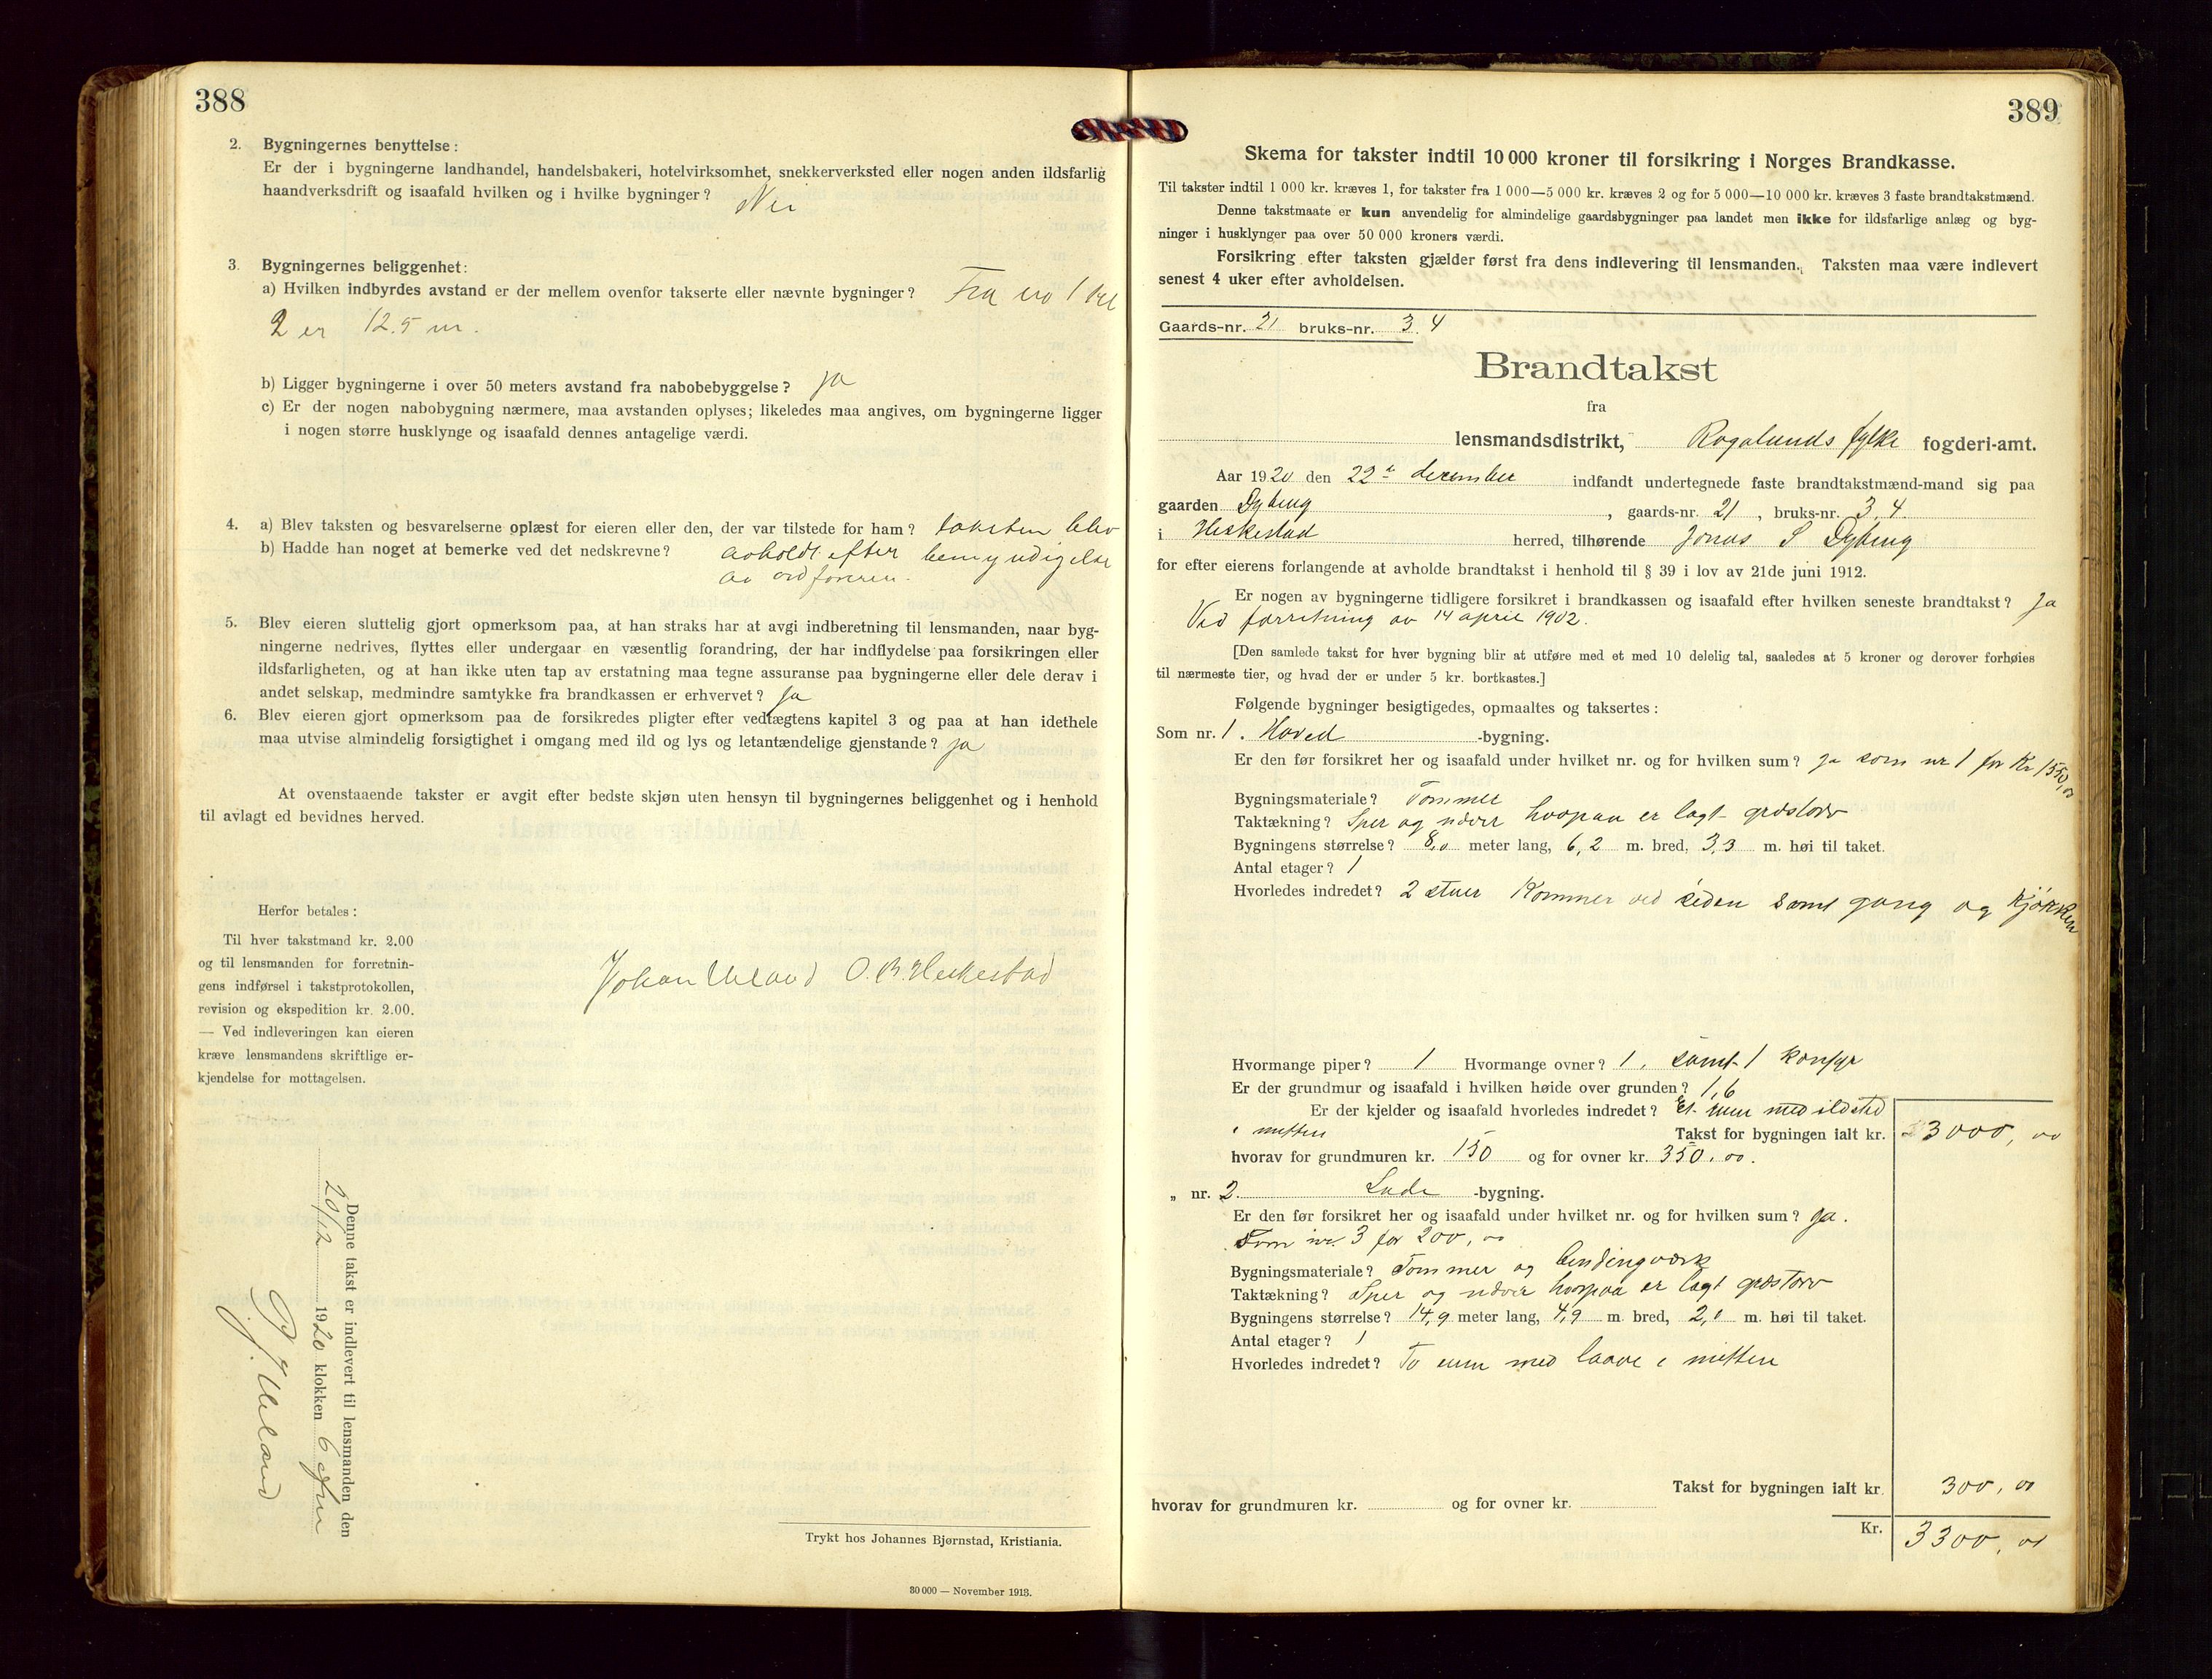 388
2. Bygningernes benyttelse:
Er der i bygningerne landhandel, handelsbakeri, hotelvirksomhet, snekkerverksted eller nogen anden ildsfarlig
haandverksdrift og isaafald hvilken og i hvilke bygninger? Nei
3. Bygningernes beliggenhet:
a) Hvilken indbyrdes avstand er der mellem ovenfor takserte eller nævnte bygninger? Fra no 1 til
2 er 12.5 m.
b) Ligger bygningerne i over 50 meters avstand fra nabobebyggelse? ja
c) Er der nogen nabobygning nærmere, maa avstanden oplyses; likeledes maa angives, om bygningerne ligger
i nogen større husklynge og isaafald dennes antagelige værdi.
4. a) Blev taksten og besvarelserne oplæst for eieren eller den, der var tilstede for ham? taksten blev
b) Hadde han noget at bemerke ved det nedskrevne? avholdt efter bemyndigelse
av ordføreren.
5. Blev eieren sluttelig gjort opmerksom paa, at han straks har at avgi indberetning til lensmanden, naar byg-
ningerne nedrives, flyttes eller undergaar en væsentlig forandring, der har indflydelse paa forsikringen eller
ildsfarligheten, og at han ikke uten tap av erstatning maa tegne assuranse paa bygningerne eller dele derav i
andet selskap, medmindre samtykke fra brandkassen er erhvervet? Ja
6. Blev eieren gjort opmerksom paa de forsikredes pligter efter vedtægtens kapitel 3 og paa at han idethele
maa utvise almindelig forsigtighet i omgang med ild og lys og letantændelige gjenstande? ja
At ovenstaaende takster er avgit efter bedste skjøn uten hensyn til bygningernes beliggenhet og i henhold
til avlagt ed bevidnes herved.
Herfor betales:
Til hver takstmand kr. 2.00
og til lensmanden for forretnin-
gens indførsel i takstprotokollen,
revision og ekspedition kr. 2.00.
— Ved indleveringen kan eieren
kræve lensmandens skriftlige er-
kjendelse for mottagelsen.
Johan Ueland O. B. Heskestad
Denne takst er indlevert til lensmanden den
20/12 1920 klokken 6 efm
Ueland
Trykt hos Johannes Bjørnstad, Kristiania.
30 000 — November 1913.
389
Skema for takster indtil 10 000 kroner til forsikring i Norges Brandkasse.
Til takster indtil 1 000 kr. kræves 1, for takster fra 1 000—5 000 kr. kræves 2 og for 5 000—10 000 kr. kræves 3 faste brandtakstmænd.
Denne takstmaate er kun anvendelig for almindelige gaardsbygninger paa landet men ikke for ildsfarlige anlæg og byg-
ninger i husklynger paa over 50 000 kroners værdi.
Forsikring efter taksten gjælder først fra dens indlevering til lensmanden. Taksten maa være indlevert
senest 4 uker efter avholdelsen.
Gaards-nr. 21 bruks-nr. 3.4
Brandtakst
fra
lensmandsdistrikt, Rogalands fylke fogderi-amt.
Aar 1920 den 22de december indfandt undertegnede faste brandtakstmænd-mand sig paa
gaarden Dybing, gaards-nr. 21, bruks-nr. 3.4
i Heskestad herred, tilhørende Jonas S Dybing
for efter eierens forlangende at avholde brandtakst i henhold til § 39 i lov av 21de juni 1912.
Er nogen av bygningerne tidligere forsikret i brandkassen og isaafald efter hvilken seneste brandtakst? Ja
Ved forretning av 14 april 1902.
[Den samlede takst for hver bygning blir at utføre med et med 10 delelig tal, saaledes at 5 kroner og derover forhøies
til nærmeste tier, og hvad der er under 5 kr. bortkastes.]
Følgende bygninger besigtigedes, opmaaltes og taksertes:
Som nr. 1. Hoved -bygning.
Er den før forsikret her og isaafald under hvilket nr. og for hvilken sum? ja som nr 1 for Kr 1550,00
Bygningsmateriale? Tømmer
Taktækning? Sper og næver hvorpaa er lagt græstorv
Bygningens størrelse? 8,0 meter lang, 6,2 m. bred, 3,3 m. høi til taket.
Antal etager? 1
Hvorledes indredet? 2 stuer Kammer ved siden samt gang og kjøkken
Hvormange piper? 1 Hvormange ovner? 1, samt 1 komfyr
Er der grundmur og isaafald i hvilken høide over grunden? 1,6
Er der kjelder og isaafald hvorledes indredet? Et rum med ildsted
i mitten Takst for bygningen ialt kr. 3000,00
hvorav for grundmuren kr. 150 og for ovner kr. 350.00.
„ nr. 2. Lade -bygning.
Er den før forsikret her og isaafald under hvilket nr. og for hvilken sum? Ja.
Som nr. 3 for 200,00
Bygningsmateriale? Tømmer og bindingverk
Taktækning? Sper og næver hvorpaa er lagt græstorv
Bygningens størrelse? 14,9 meter lang, 4,9 m. bred, 2,0 m. høi til taket.
Antal etager? 1
Hvorledes indredet? To rum med laave i mitten
Takst for bygningen ialt kr. 300,00
hvorav for grundmuren kr. og for ovner kr.
Kr. 3300,00